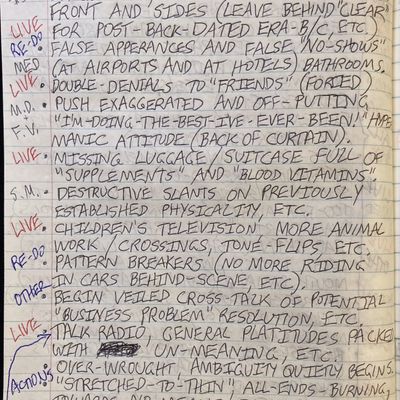 FRONT AND SIDES (LEAVE BEHIND "CLEAR"
LIVE FOR POST-BACK-DATED ERA-B/C, ETC.)
RE-DO FALSE APPERANCES AND FALSE "NO-SHOWS"
MED (AT AIRPORTS AND AT HOTELS) BATHROOMS.
LIVE • DOUBLE-DENIALS TO "FRIENDS" (FORIED)
M.D. • PUSH EXAGGERATED AND OFF-PUTTING
+ F.V. "I'M-DOING-THE-BEST-IVE-EVER-BEEN!" HYPE
MANIC ATTITUDE (BACK OF CURTAIN).
LIVE • MISSING LUGGAGE/SUITCASE FULL OF
"SUPPLEMENTS" AND "BLOOD VITAMINS".
S.M. • DESTRUCTIVE SLANTS ON PREVIOUSLY
ESTABLISHED PHYSICALITY, ETC.
LIVE • CHILDREN'S TELEVISION MORE ANIMAL
WORK/CROSSINGS, TONE-FLIPS, ETC.
RE-DO • PATTERN BREAKERS (NO MORE RIDING
IN CARS BEHIND-SCENE, ETC).
OTHER • BEGIN VEILED CROSS-TALK OF POTENTIAL
"BUSINESS PROBLEM" RESOLUTION, ETC.
LIVE • TALK RADIO, GENERAL PLATITUDES PACKED
WITH UN-MEANING, ETC.
• OVER-WROUGHT, AMBIGUITY QUIETLY BEGINS.
ACTIONS • "STRETCHED-TO-THIN", ALL-ENDS-BURNING,
TOWARDS NO